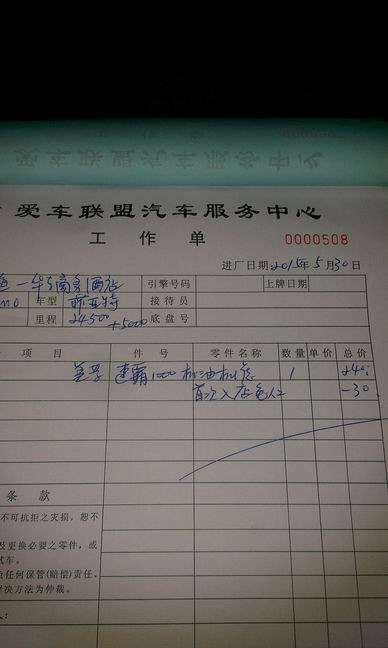 爱车联盟汽车服务中心
工 作 单 0000508
进厂日期:2015年5月30日
引擎号码 上牌日期
车型 菲亚特 接待员
里程 24500 +5000 底盘号
项 目 件 号 零件名称 数量 单价 总价
速霸1000 机油机滤 1 240
首次入店免人工 -30
条 款
不可抗拒之灾损，恕不
及更换必要之零件，或
试车。
负任何保管(赔偿)责任。
解决方法为仲裁。